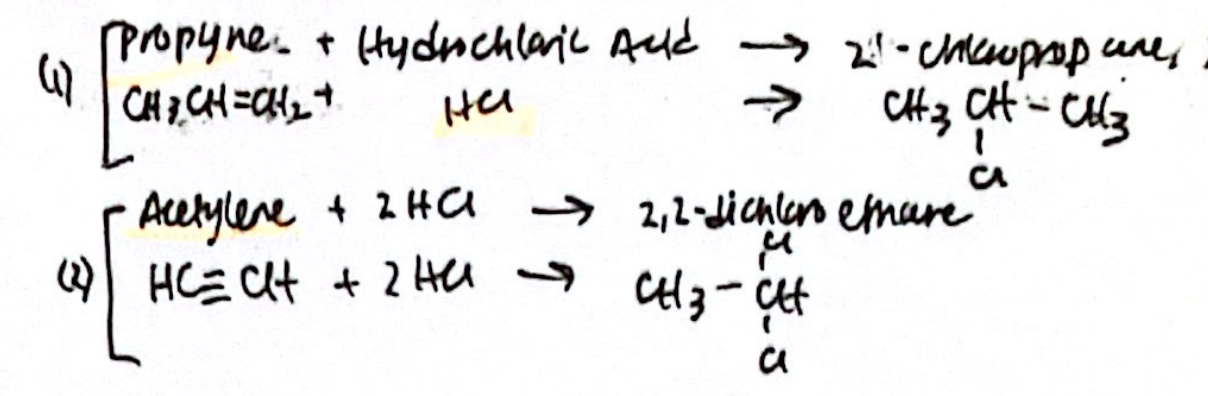 (1) Propyne. + Hydrochloric Acid → 2-chloropropane,
CH3CH=CH2 + HCl → CH3 CH - CH3
Cl
Acetylene + 2 HCl → 2,2-dichloro ethane
Cl
(2) HC≡CH + 2 HCl → CH3 - CH
Cl